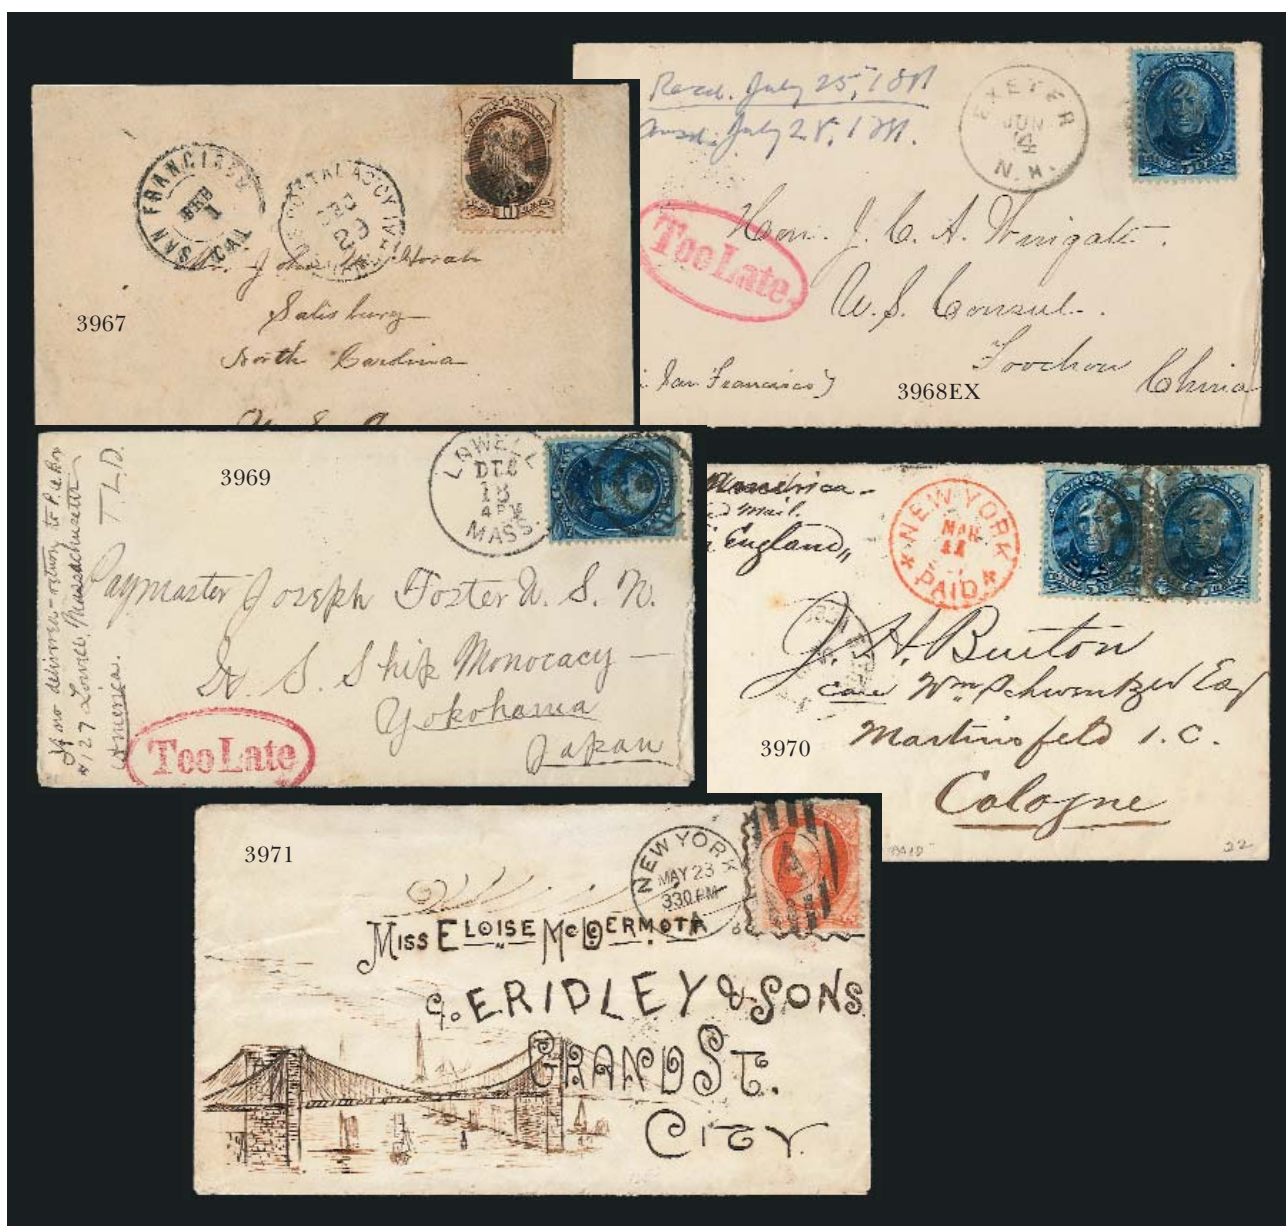 SAN FRANCISCO
FEB
1
CAL
Mr. John M. Horah
Salisbury
North Carolina
U. S. A.
3967
Recd. July 25, 1881
Ansd. July 28, 1881.
EXETER
JUN
4
N.H.
Too Late
Hon. J. C. A. Wingate.
U. S. Consul.
Foochow
China
San Francisco)
3968EX
3969
LOWELL
DEC
13
MASS.
If not delivered - return to P.O. Box
127 Lowell, Massachusetts
America.
T. L. D.
Paymaster Joseph Foster U. S. N.
U. S. Ship Monocacy
Yokohama
Japan
Too Late
America
mail.
England,,
NEW YORK
MAR
11
PAID
J. H. Burton
care Wm Schwentzer Esq
Martinsfeld 1. C.
Cologne
3970
PAID
22
3971
NEW YORK
MAY 23
330 PM
A
10
MISS ELOISE McDERMOTT
c/o E. RIDLEY & SONS
GRAND ST.
CITY